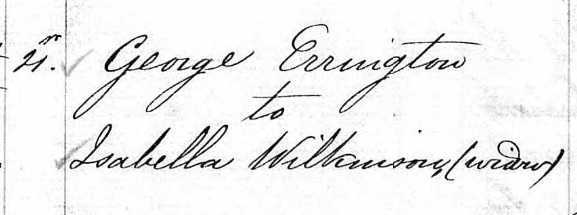 21. George Errington
to
Isabella Wilkinson, (widow)